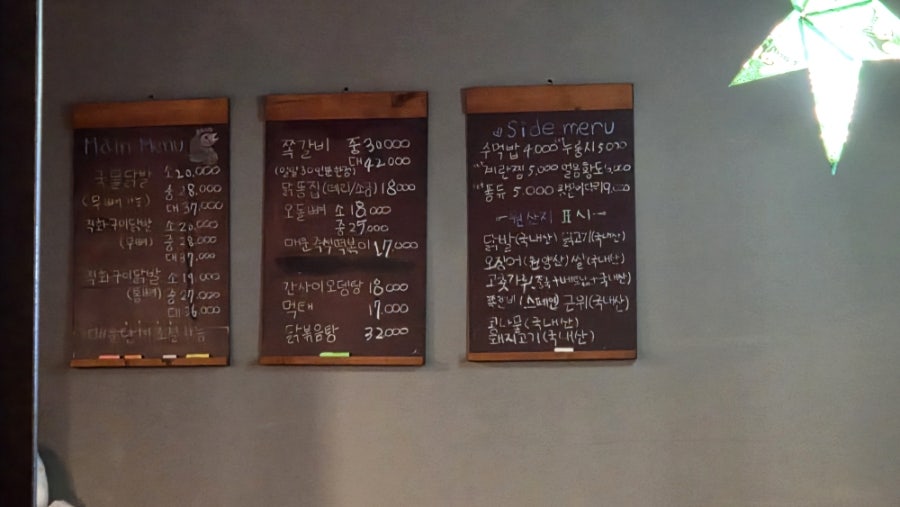 Main Menu
국물닭발 소 20.000
중 28.000
(무뼈 가능) 대 37.000
직화구이닭발 소 20.000
(무뼈) 중 28.000
대 37.000
직화구이닭발 소 19.000
(통뼈) 중 27.000
대 36.000
쪽갈비 중 30000
대 42000
닭똥집(데리/소금) 18.000
오돌뼈 소 18.000
중 25.000
매운즉석떡볶이 17.000
간사이오뎅탕 18000
먹태 17.000
닭볶음탕 32000
Side menu
주먹밥 4000 누룽지 5000
계란찜 5,000 얼음황도
쿨듀 5.000
원산지 표시
닭발(국내산) 닭고기(국내산)
오징어(원양산) 쌀(국내산)
고춧가루
쪽갈비(스페인) 근위(국내산)
콩나물(국내산)
돼지고기(국내산)